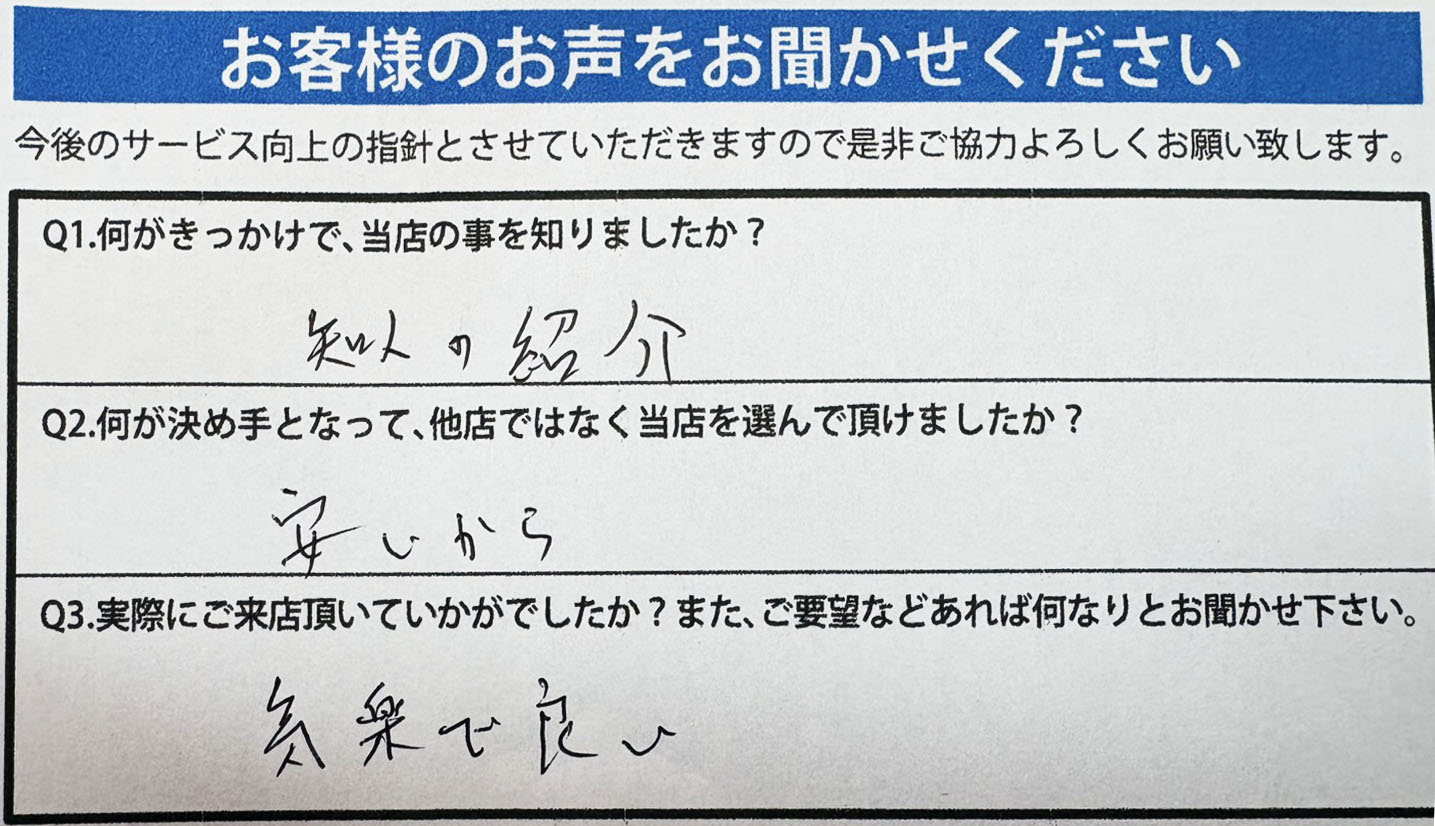 お客様のお声をお聞かせください
今後のサービス向上の指針とさせていただきますので是非ご協力よろしくお願い致します。
Q1.何がきっかけで、当店の事を知りましたか？
知人の紹介
Q2.何が決め手となって、他店ではなく当店を選んで頂けましたか？
安いから
Q3.実際にご来店頂いていかがでしたか？また、ご要望などあれば何なりとお聞かせ下さい。
気楽で良い